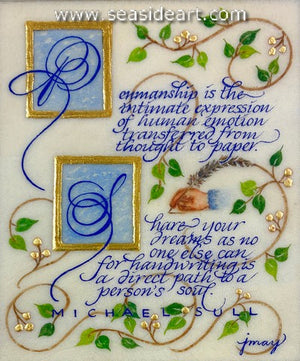 www.seasideart.com
Penmanship is the
intimate expression
of human emotion
transferred from
thought to paper.
Share your
dreams as no
one else can
for handwriting is
a direct path to a
person's soul.
MICHAEL SULL
jmay